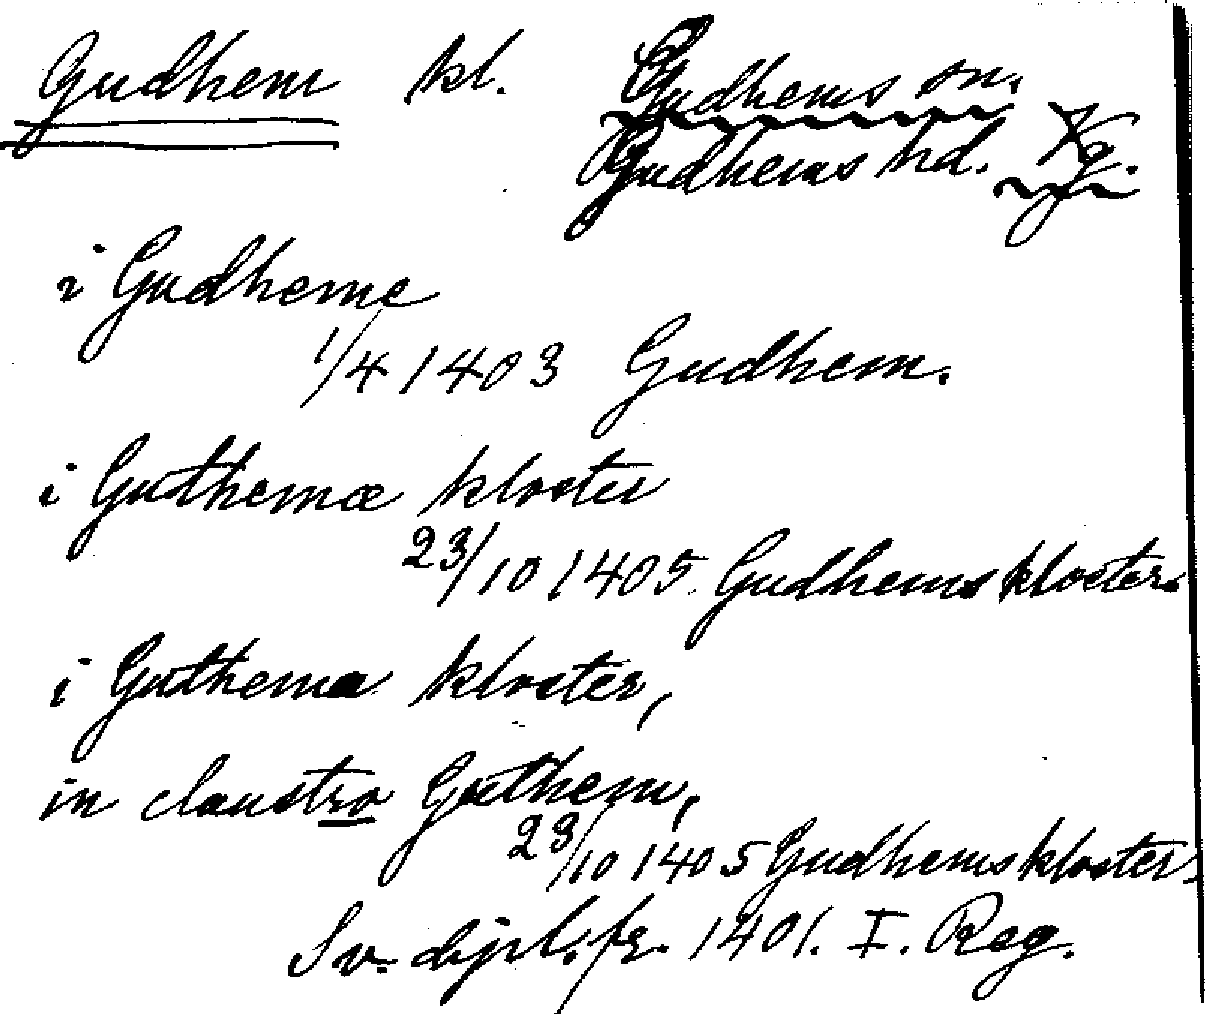 Gudhem kl. Gudhems sn.
Gudhems hd. Vg.
i Gudheme
1/4 1403 Gudhem.
i Guthemæ kloster
23/10 1405. Gudhems kloster.
i Guthema kloster,
in claustro Guthem,
23/10 1405 Gudhems kloster.
Sv. dipl. fr. 1401. I. Reg.